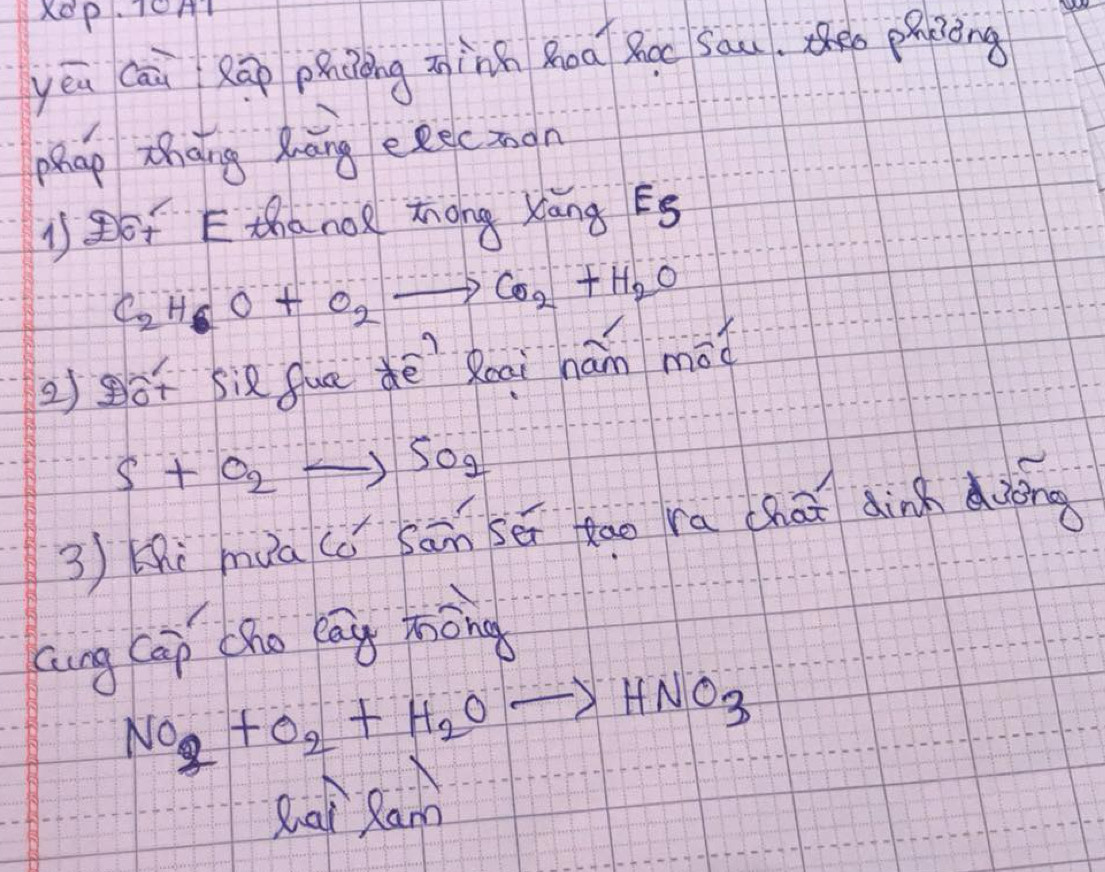 Lớp. 10A1
yêu cầu: lập phương trình hoá học sau. theo phương
pháp thăng bằng elecmon
1) Đốt Ethanol trong xăng E5
C₂H₆O + O₂ → CO₂ + H₂O
2) Đốt silfua để loại nấm mốc
S + O₂ → SO₂
3) Khi mưa có sấm sét tạo ra chất dinh dưỡng
cung cấp cho cây trồng
NO₂ + O₂ + H₂O → HNO₃
bài làm